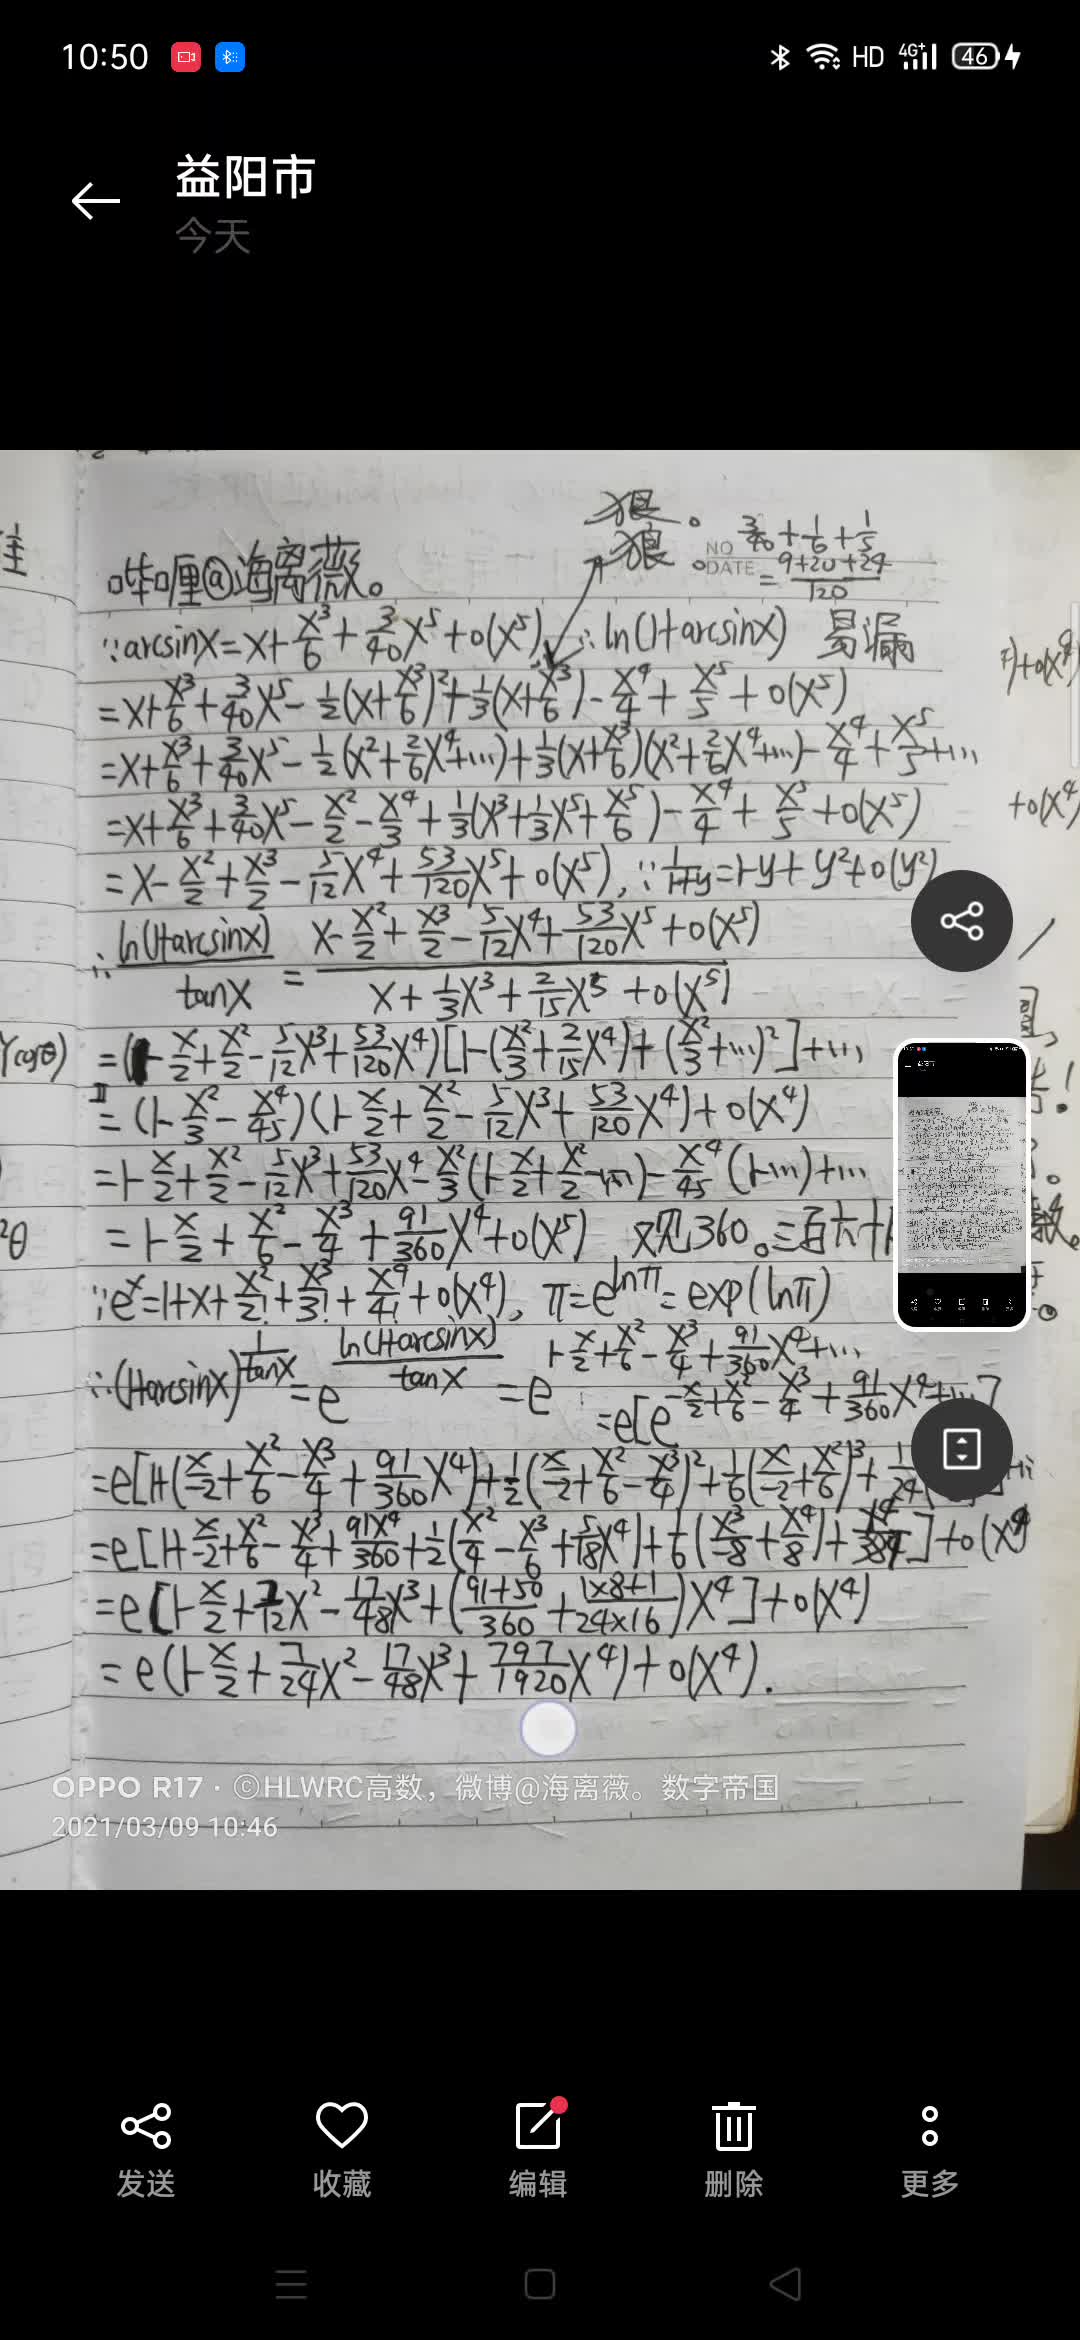 10:50 HD 4G+ 46
益阳市
今天
狠。
哔哩@海离薇。 狼。 NO DATE 3/40+1/6+1/5 = (9+20+24)/120
∵arcsinx=x+x³/6+3/40x⁵+o(x⁵), ∴ln(1+arcsinx) 易漏
=x+x³/6+3/40x⁵-1/2(x+x³/6)²+1/3(x+x³/6)³-x⁴/4+x⁵/5+o(x⁵)
=x+x³/6+3/40x⁵-1/2(x²+2/6x⁴+...)+1/3(x+x³/6)(x²+2/6x⁴+...)-x⁴/4+x⁵/5+...
=x+x³/6+3/40x⁵-x²/2-x⁴/3+1/3(x³+1/3x⁵+x⁵/6)-x⁴/4+x⁵/5+o(x⁵)
=x-x²/2+x³/2-5/12x⁴+53/120x⁵+o(x⁵), ∵1/(1+y)=1-y+y²+o(y²)
∴ln(1+arcsinx)/tanx = (x-x²/2+x³/2-5/12x⁴+53/120x⁵+o(x⁵))/(x+1/3x³+2/15x⁵+o(x⁵))
=(1-x/2+x²/2-5/12x³+53/120x⁴)[1-(x²/3+2/15x⁴)+(x²/3+...)²]+...
=(1-x²/3-x⁴/45)(1-x/2+x²/2-5/12x³+53/120x⁴)+o(x⁴)
=1-x/2+x²/2-5/12x³+53/120x⁴-x²/3(1-x/2+x²/2-...)-x⁴/45(1-...)+...
=1-x/2+x²/6-x³/4+91/360x⁴+o(x⁵) 又见360。三百六十
∵eˣ=1+x+x²/2!+x³/3!+x⁴/4!+o(x⁴), π=e^lnπ=exp(lnπ)
∴(1+arcsinx)^(1/tanx)=e^(ln(1+arcsinx)/tanx)=e^(1-x/2+x²/6-x³/4+91/360x⁴+...)
=e[e^(-x/2+x²/6-x³/4+91/360x⁴+...)]
=e[1+(x/-2+x²/6-x³/4+91/360x⁴)+1/2(x/-2+x²/6-x³/4)²+1/6(x/-2+x²/6)³+1/24
=e[1+x/-2+x²/6-x³/4+91x⁴/360+1/2(x²/4-x³/6+5/18x⁴)+1/6(x³/-8+x⁴/8)+x⁴/384]+o(x⁴)
=e[1-x/2+7/12x²-17/48x³+((91+50)/360+(1×8+1)/(24×16))x⁴]+o(x⁴)
=e(1-x/2+7/24x²-17/48x³+797/1920x⁴)+o(x⁴).
OPPO R17 · ©HLWRC高数，微博@海离薇。数字帝国
2021/03/09 10:46
发送 收藏 编辑 删除 更多